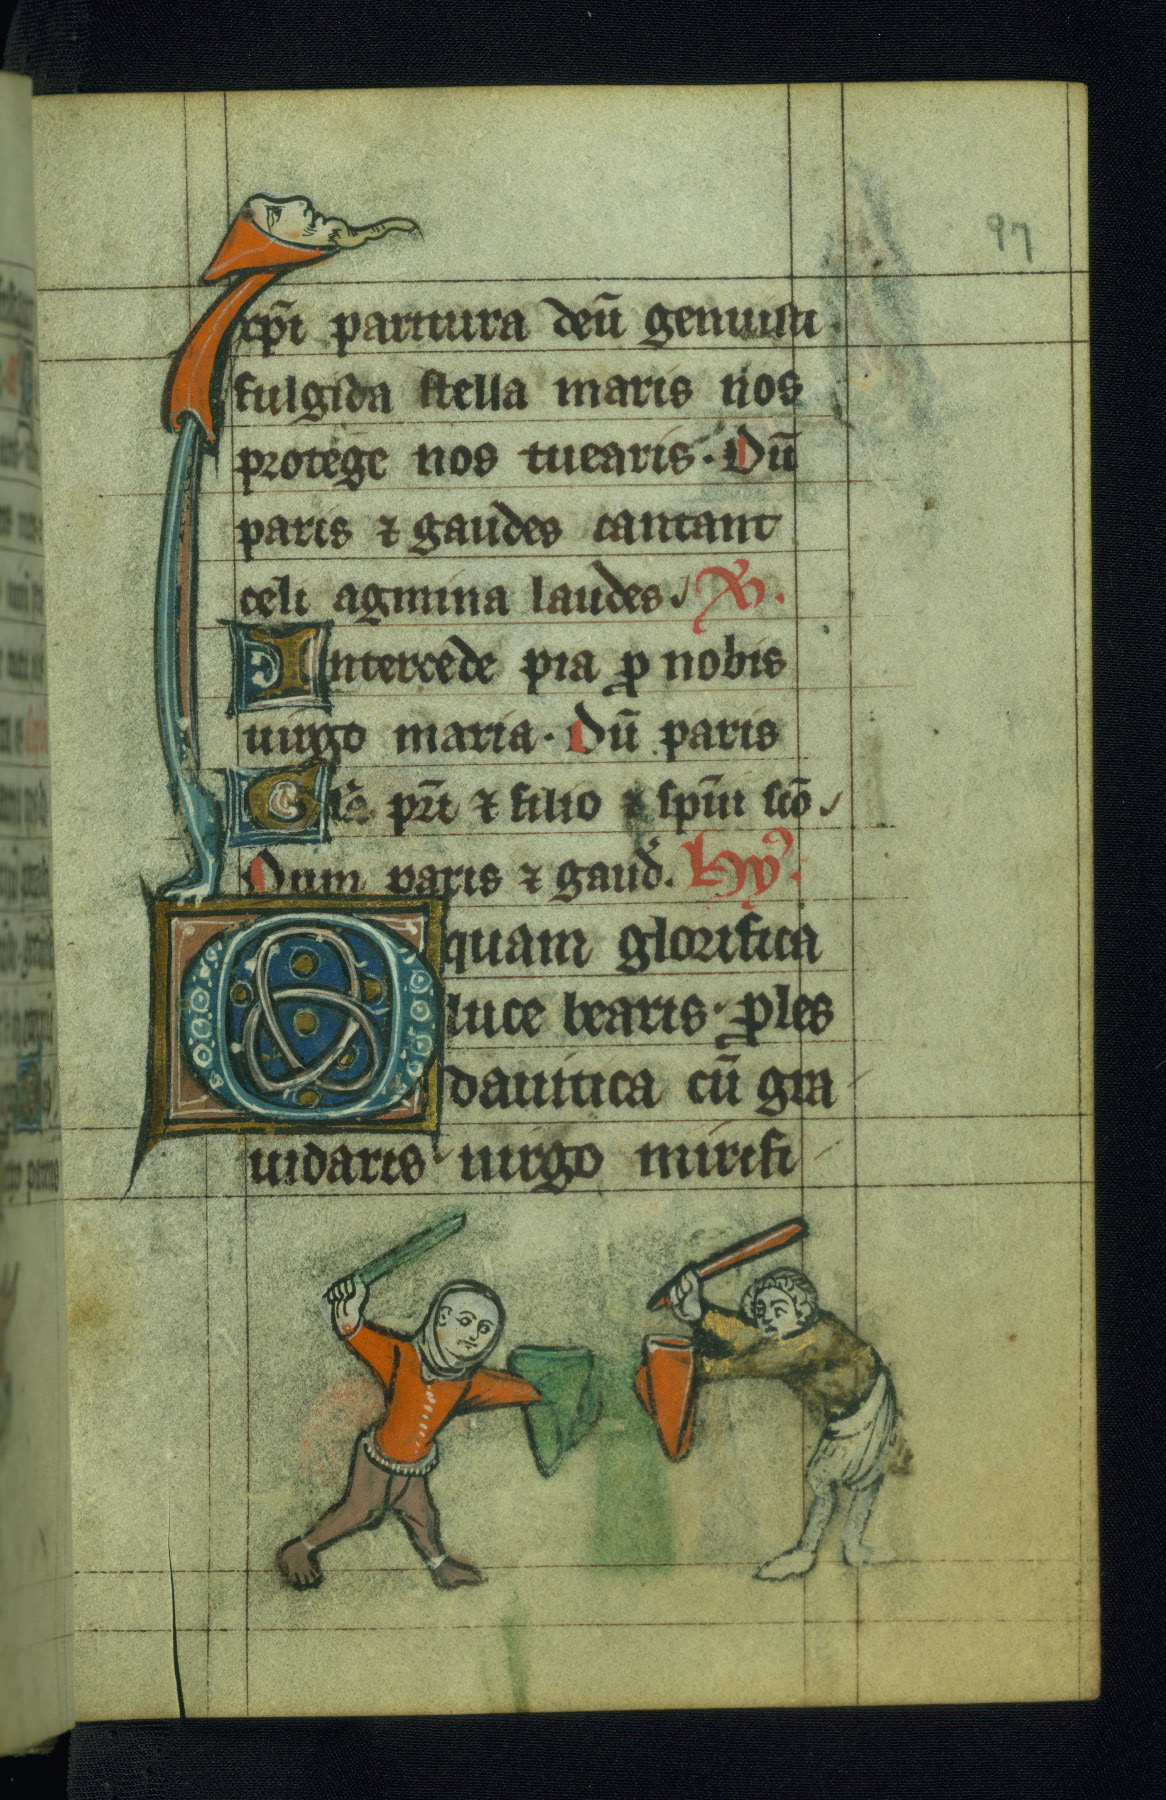 97
xp̄i paritura deū genuisti
fulgida stella maris nos
protege nos tuearis. Dū
paris ⁊ gaudes cantant
celi agmina laudes. V.
Intercede pia ꝓ nobis
uirgo maria. Dū paris
Gl̄a pr̄i ⁊ filio ⁊ sp̄ui sc̄o.
Dum paris ⁊ gaud̄. Hy̾.
O quam glorifica
luce bearis. ꝓles
dauitica cū gra
uidaris uirgo mirifi